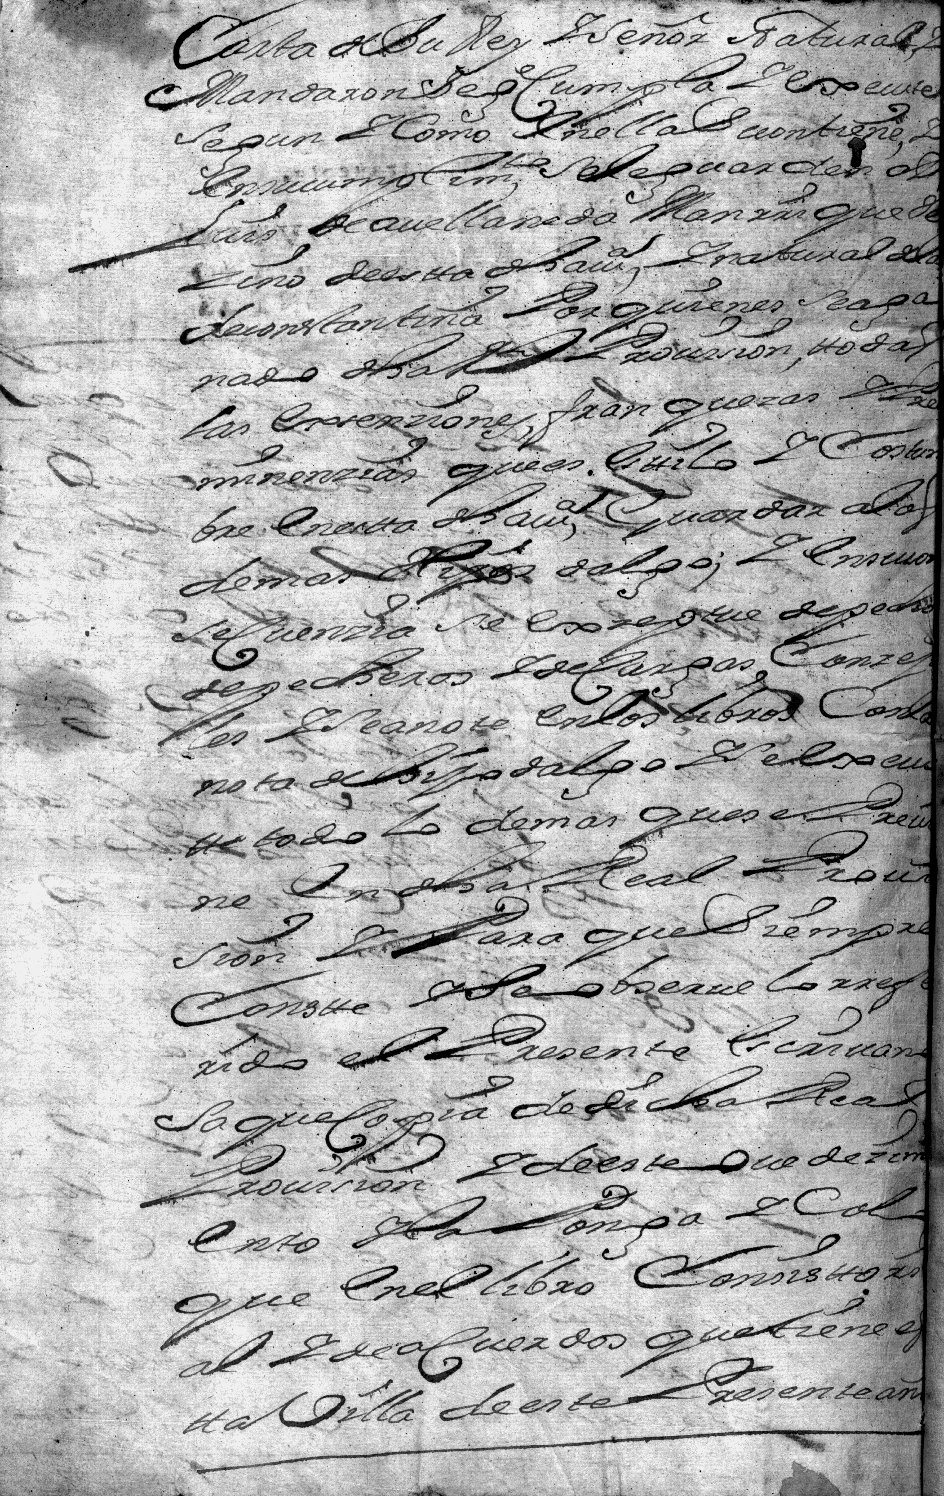 Carta de Su Rey Y Señor Natural, Y
Mandaron Seg Cumpla Y Execute
Segun Y Como Enella Secontiene, Y
Ensucumplimto Seleguarden a Dn
Luis de auellaneda Manrrique Ve
zino deesta dha uia, Y natural dela
deconstantina Por quienes Sea ga
nado dha Rl Prouission, todas
las Exsenziones, franquezas Y Pre
minenzias quees Estilo Y Costum
bre Enesta dha uia, Guardar alos
demas Hijos dalgo; Y Ensucon
seCuenzia Se Exstrique depadro
depecheros Y deCargas Conzeji
les Y Seanote Enlos libros Conla
nota de hijo dalgo Y Se Execu
tte todo lo demas quese Preuie
ne En dha Real Prouis
sion Y Para que Siempre
Conste Y Se obserue lo rrefe
rido el Presente Escriuano
Saque Copia de dicha Real
Prouission Y deeste Ouedezimi
ento Y la Ponga Y Colo
que Enel libro Conssistori
al Y deaCuerdos quetiene es
tta Villa deeste Presente año